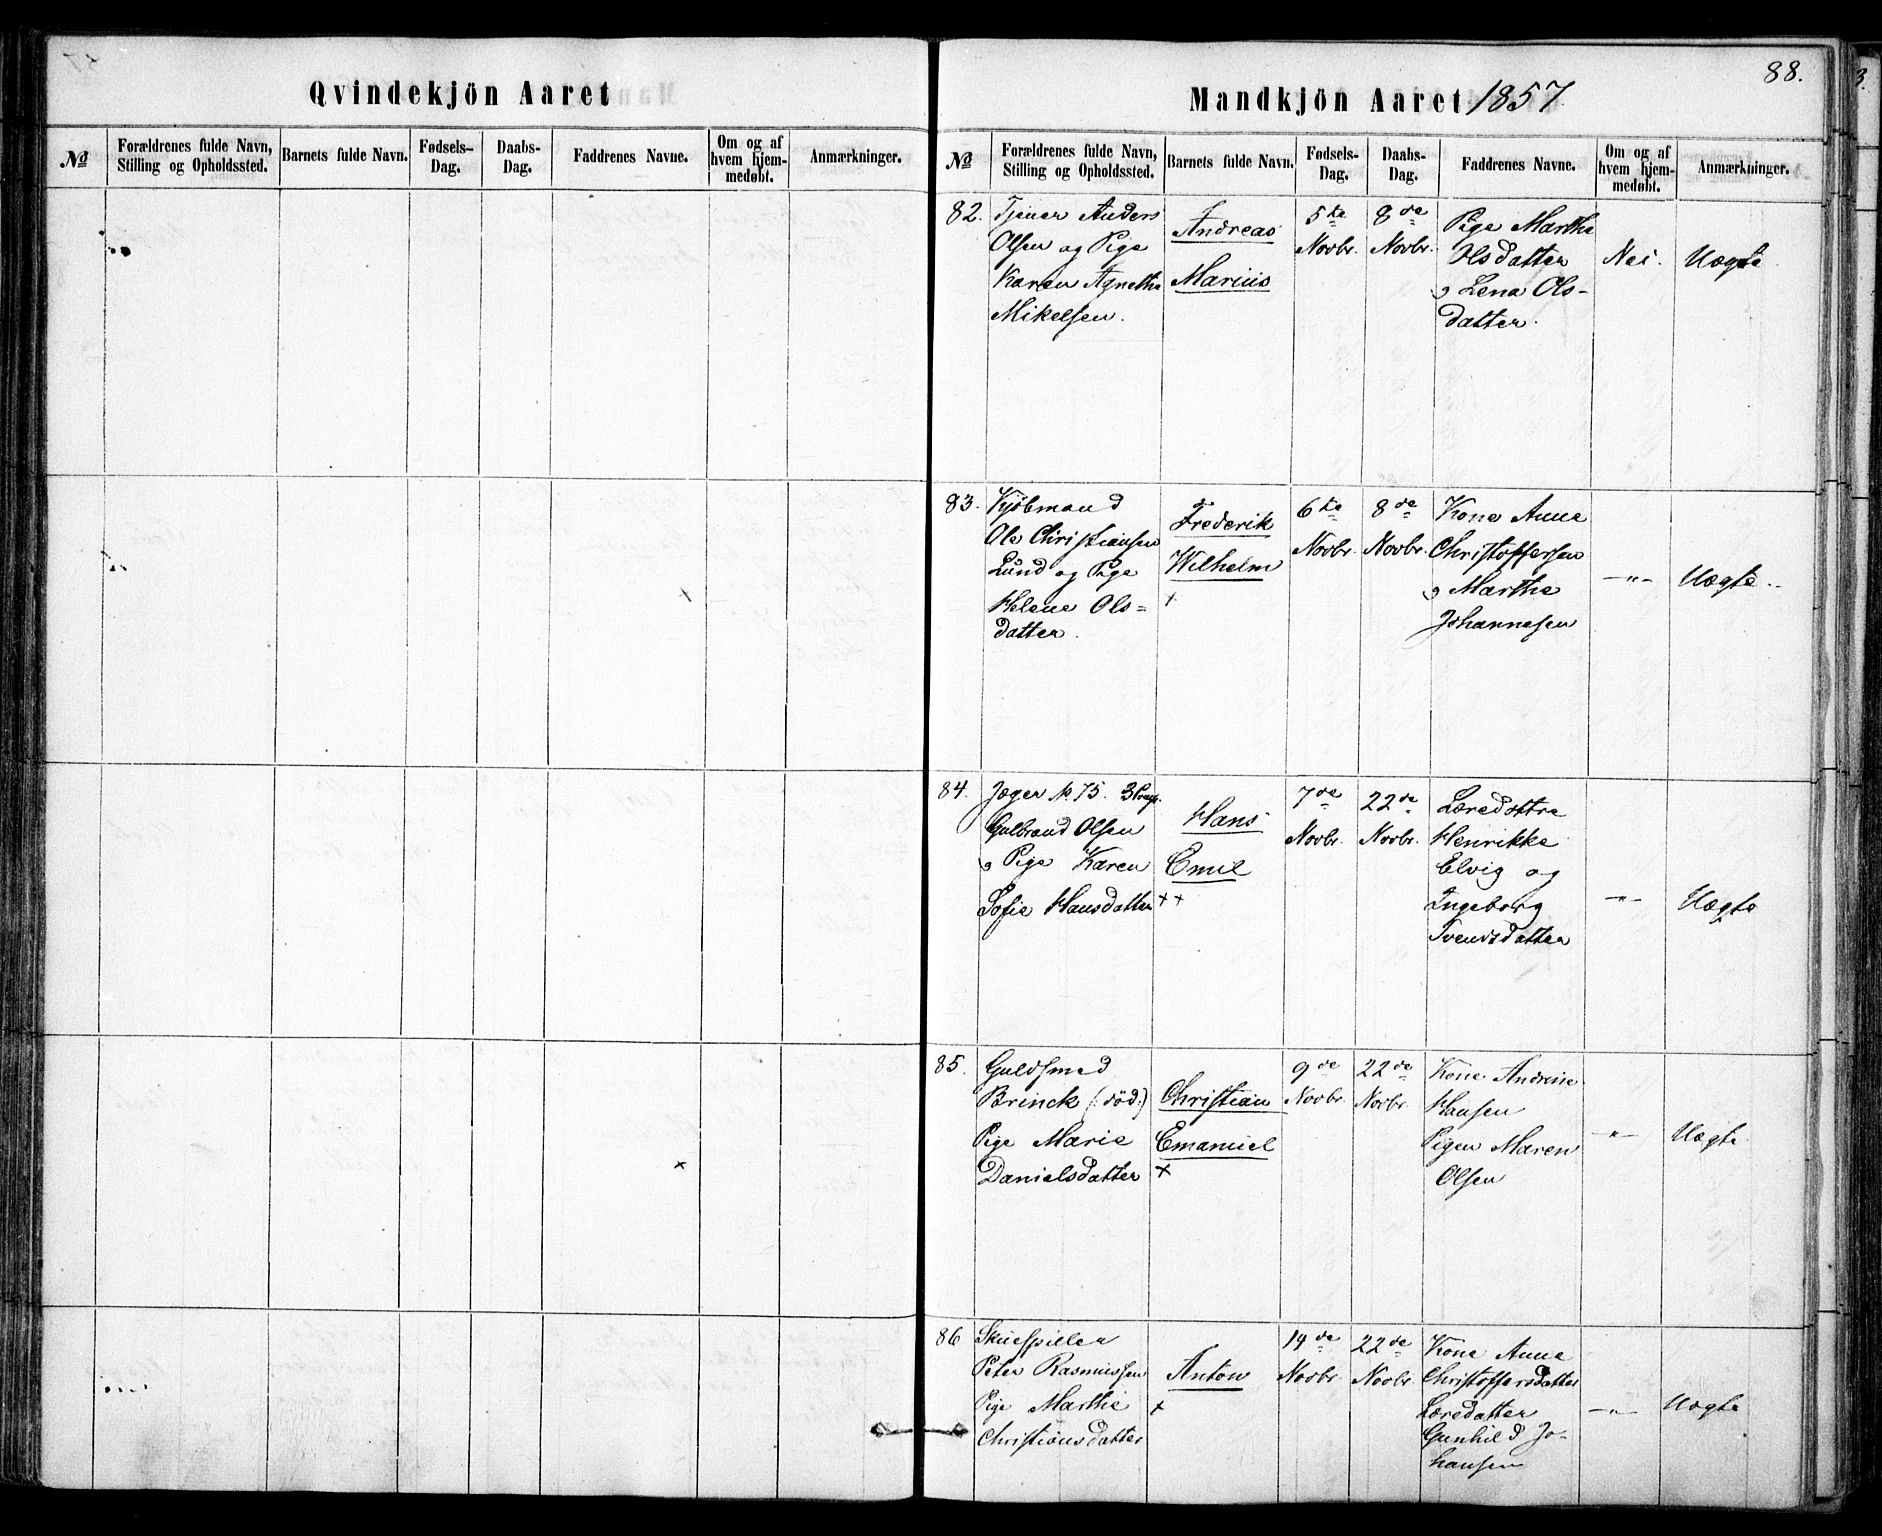 88.
Qvindekjön Aaret
№
Forældrenes fulde Navn, Stilling og Opholdssted.
Barnets fulde Navn.
Fødsels-Dag.
Daabs-Dag.
Faddrenes Navne.
Om og af hvem hjem-medøbt.
Anmærkninger.
Mandkjön Aaret 1857
№
Forældrenes fulde Navn, Stilling og Opholdssted.
Barnets fulde Navn.
Fødsels-Dag.
Daabs-Dag.
Faddrenes Navne.
Om og af hvem hjem-medøbt.
Anmærkninger.
82.
Tjener Anders
Olsen og Pige
Karen Agnetha
Mikelsen.
Andreas
Marius
5te
Novbr.
8de
Novbr.
Pige Martha
Olsdatter
og Lena Ols-
datter.
Nei.
Uægte
83.
Kjøbmand
Ole Christiansen
Lund og Pige
Helene Ols=
datter.
Frederik
Wilhelm
+
6te
Novbr.
8de
Novbr.
Kone Anne
Christoffersen
og Marthe
Johannesen
—"—
Uægte
84.
Jæger № 75. 3 Comp.
Gulbrand Olsen
og Pige Karen
Sofie Hansdatter
Hans
Emil
++
7de
Novbr.
22de
Novbr.
Læredøttre
Henrikke
Elvig og
Ingeborg
Svendsdatter
—"—
Uægte
85.
Guldsmed
Brinck (: død:)
Pige Marie
Danielsdatter
Christian
Emanuel
+
9de
Novbr.
22de
Novbr.
Kone Andrine
Hansen
Pigen Maren
Olsen
—"—
Uægte
86
Skuespiller
Peter Rasmussen
Pige Marthe
Christiansdatter
Anton
+
14de
Novbr.
22de
Novbr.
Kone Anne
Christoffersdatter
Læredatter
Gunhild Jo-
hansen
—"—
Uægte